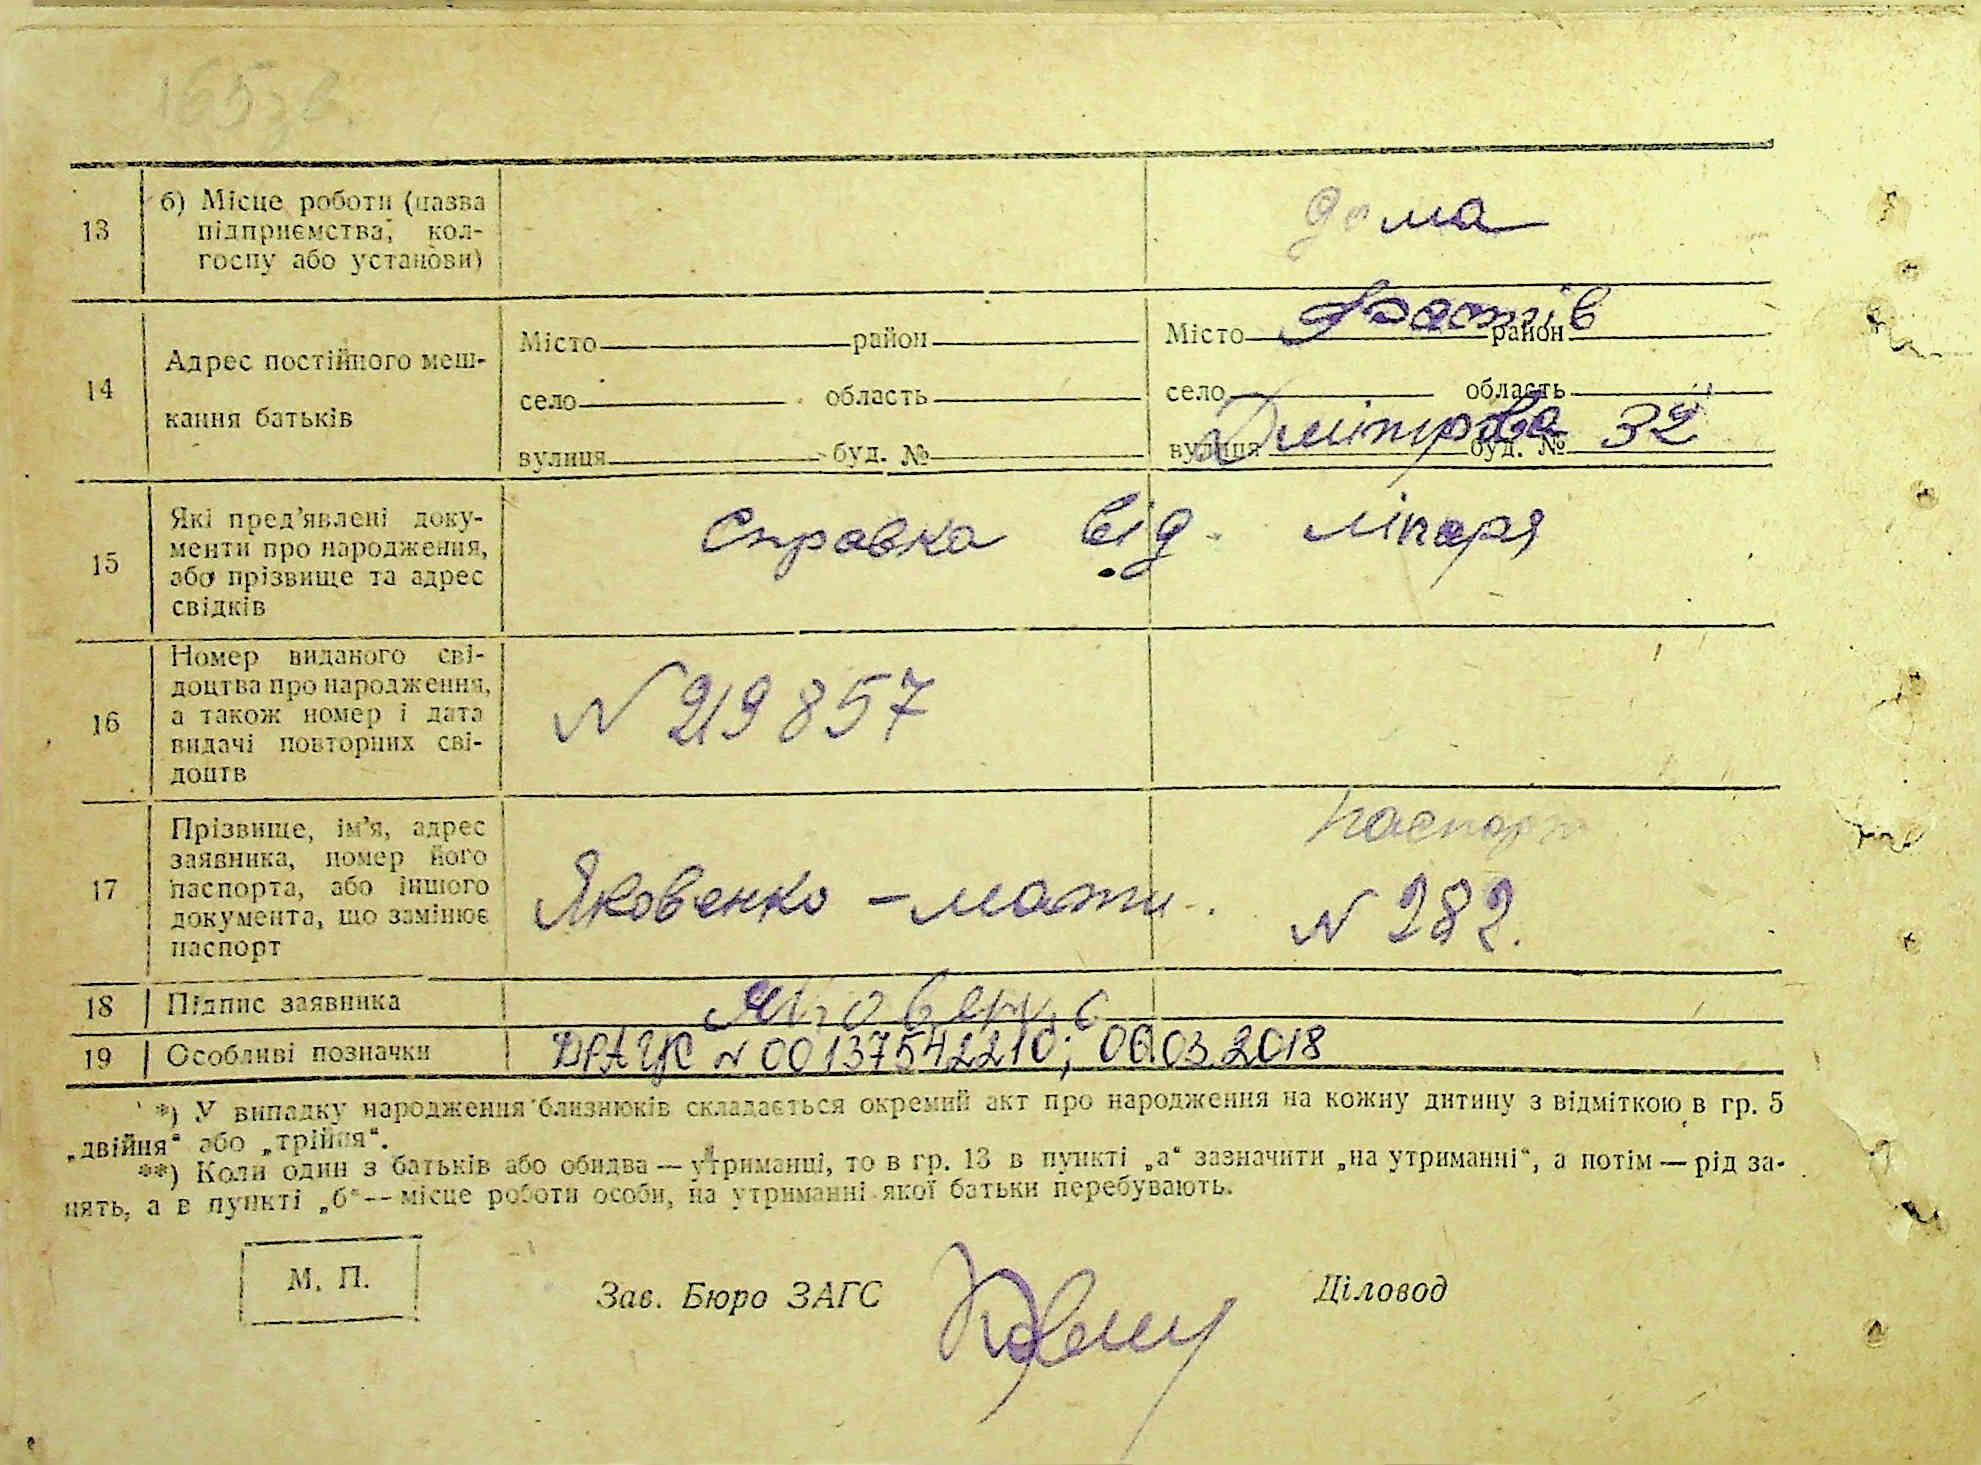 165зв.
13
б) Місце роботи (назва
підприємства, кол-
госпу або установи)
дома
14
Адрес постійного меш-
кання батьків
Місто район
село область
вулиця буд. №
Місто Фастів район
село область
вулиця Дмітрова буд. № 32
15
Які пред'явлені доку-
менти про народження,
або прізвище та адрес
свідків
Справка від лікаря
16
Номер виданого сві-
доцтва про народження,
а також номер і дата
видачі повторних сві-
доцтв
N 219857
17
Прізвище, ім'я, адрес
заявника, номер його
паспорта, або іншого
документа, що замінює
паспорт
Яковенко – мати.
паспорт
N 282.
18
Підпис заявника
19
Особливі позначки
ДРАЦС N 00137542210; 06.03.2018
*) У випадку народження близнюків складається окремий акт про народження на кожну дитину з відміткою в гр. 5
„двійня“ або „трійня“.
**) Коли один з батьків або обидва — утриманці, то в гр. 13 в пункті „а“ зазначити „на утриманні“, а потім — рід за-
нять, а в пункті „б“ — місце роботи особи, на утриманні якої батьки перебувають.
М. П.
Зав. Бюро ЗАГС
Діловод